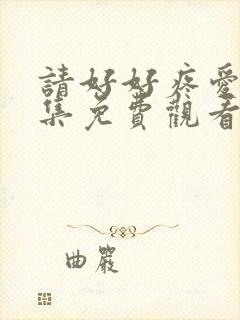 請好好疼愛
集免費觀看
曲嚴